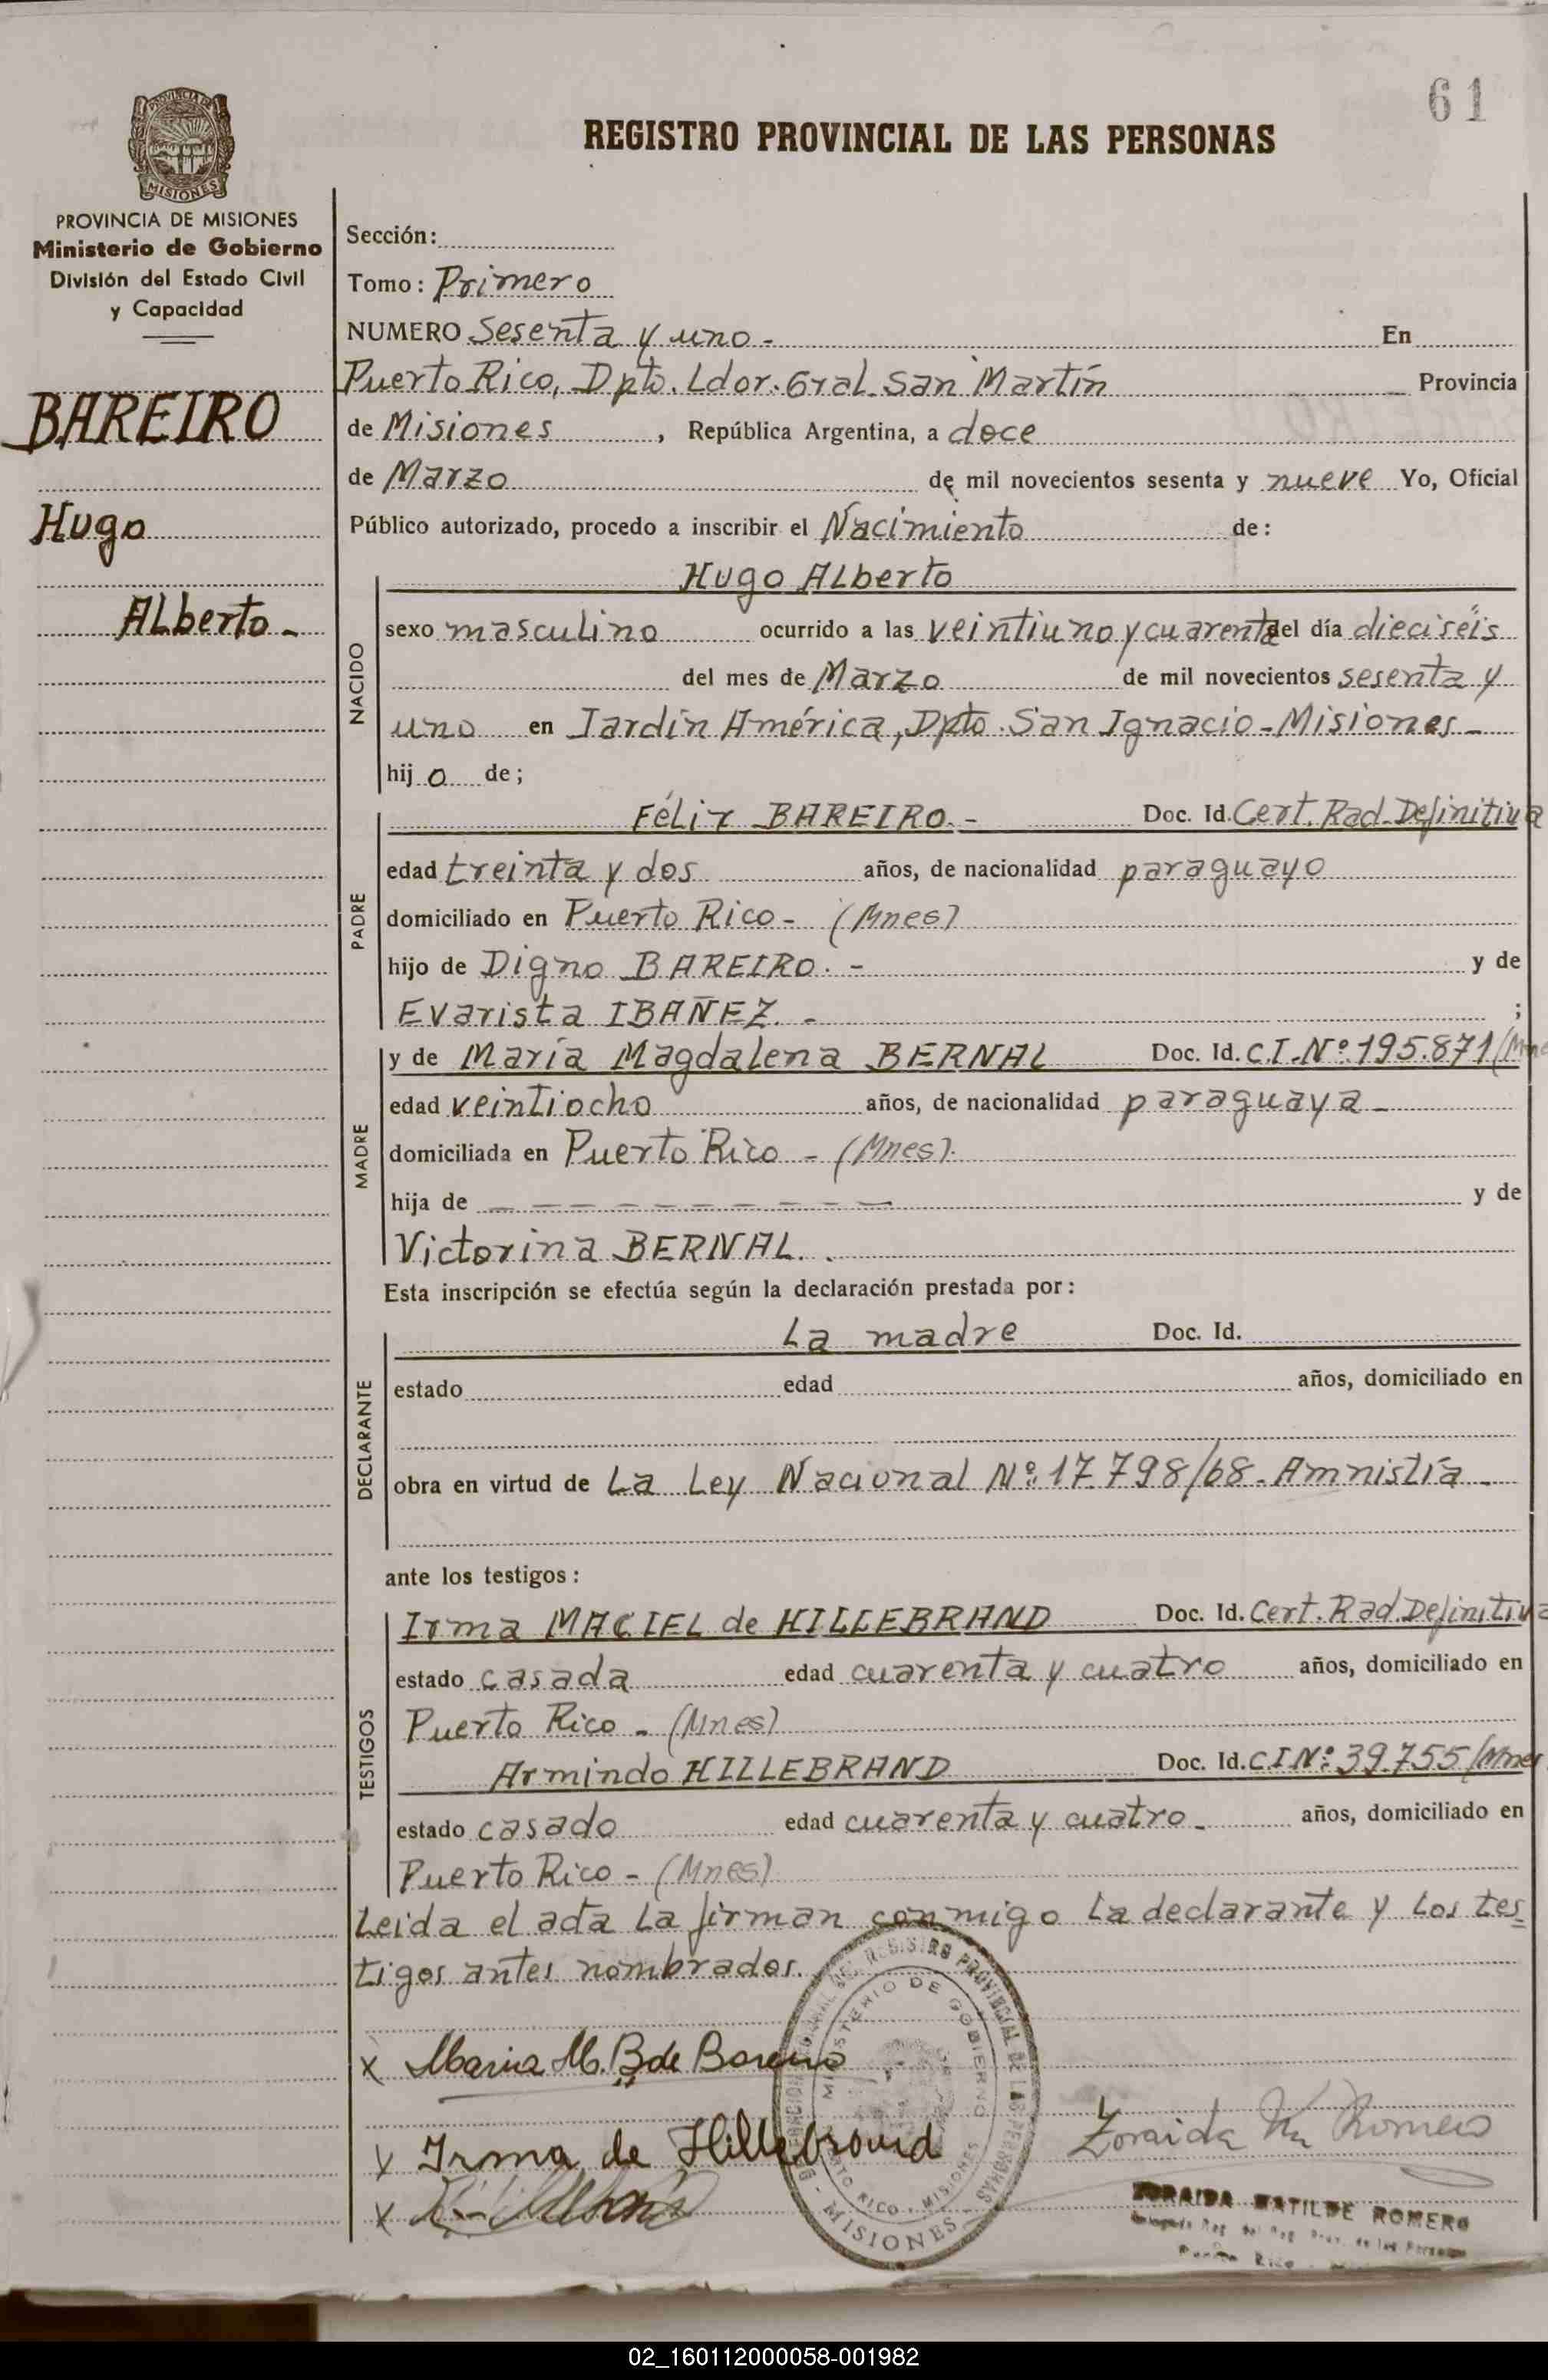 61
REGISTRO PROVINCIAL DE LAS PERSONAS
PROVINCIA DE
MISIONES
PROVINCIA DE MISIONES
Ministerio de Gobierno
División del Estado Civil
y Capacidad
BAREIRO
Hugo
ALberto -
Sección:
Tomo: Primero
NUMERO Sesenta y uno - En
Puerto Rico, Dpto. Ldor. Gral. San Martín Provincia
de Misiones, República Argentina, a doce
de Marzo de mil novecientos sesenta y nueve Yo, Oficial
Público autorizado, procedo a inscribir el Nacimiento de:
Hugo ALberto
NACIDO
sexo masculino ocurrido a las veintiuno y cuarenta del día dieciséis
del mes de Marzo de mil novecientos sesenta y
uno en Jardín América, Dpto. San Ignacio - Misiones -
hijo de;
PADRE
Félix BAREIRO. - Doc. Id. Cert. Rad. Definitiva
edad treinta y dos años, de nacionalidad paraguayo
domiciliado en Puerto Rico - (Mnes)
hijo de Digno BAREIRO. - y de
Evarista IBAÑEZ. - ;
MADRE
y de María Magdalena BERNAL Doc. Id. C.I. Nº 195.871/Mne
edad veintiocho años, de nacionalidad paraguaya -
domiciliada en Puerto Rico - (Mnes).
hija de — — — — — — — — — y de
Victorina BERNAL. .
Esta inscripción se efectúa según la declaración prestada por:
DECLARANTE
La madre Doc. Id.
estado edad años, domiciliado en
obra en virtud de La Ley Nacional Nº 17.798/68 - Amnistía -
ante los testigos:
TESTIGOS
Irma MACIEL de HILLEBRAND Doc. Id. Cert. Rad. Definitiva
estado casada edad cuarenta y cuatro años, domiciliado en
Puerto Rico - (Mnes)
Armindo HILLEBRAND Doc. Id. C.I Nº 39.755/Mnes
estado casado edad cuarenta y cuatro - años, domiciliado en
Puerto Rico - (Mnes)
Leida el acta La firman conmigo La declarante y Los tes-
tigos antes nombrados.
REGISTRO PROVINCIAL DE LAS PERSONAS
MINISTERIO DE GOBIERNO
PUERTO RICO - MISIONES
MISIONES
x Maria M. B de Bareiro
x Irma de Hillebrand
x
Zoraida M. Romero
ZORAIDA MATILDE ROMERO
Puerto Rico
02_160112000058-001982